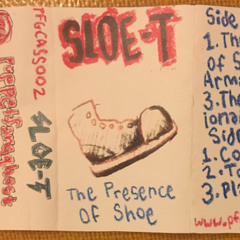 PFGCASS002
SLOE-T
SLOE-T
The Presence
Of Shoe
Side
1. Th
Of S
Arm
3. Th
iona
Side
1. Co
2. To
3. Pl
www.pf